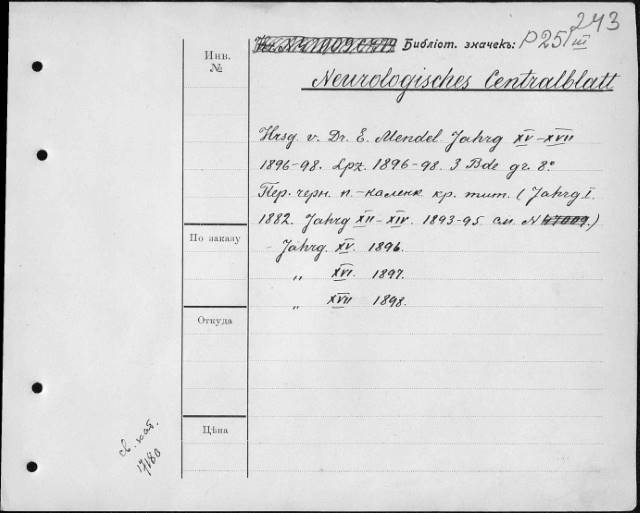 243
Библіот. значекъ: P 25/III
Инв. №
Neurologisches Centralblatt
Hrsg. v. Dr. E. Mendel. Jahrg XV-XVII
1896-98. Lpz. 1896-98. 3 Bde gr. 8.°
Пер. черн. п.-каленк кр. тит. (Jahrg I.
1882. Jahrg XII-XIV. 1893-95 см. N 47009.)
По заказу
- Jahrg. XV. 1896.
„ XVI. 1897.
„ XVII 1898.
Откуда
Цѣна
св. кат.
17180